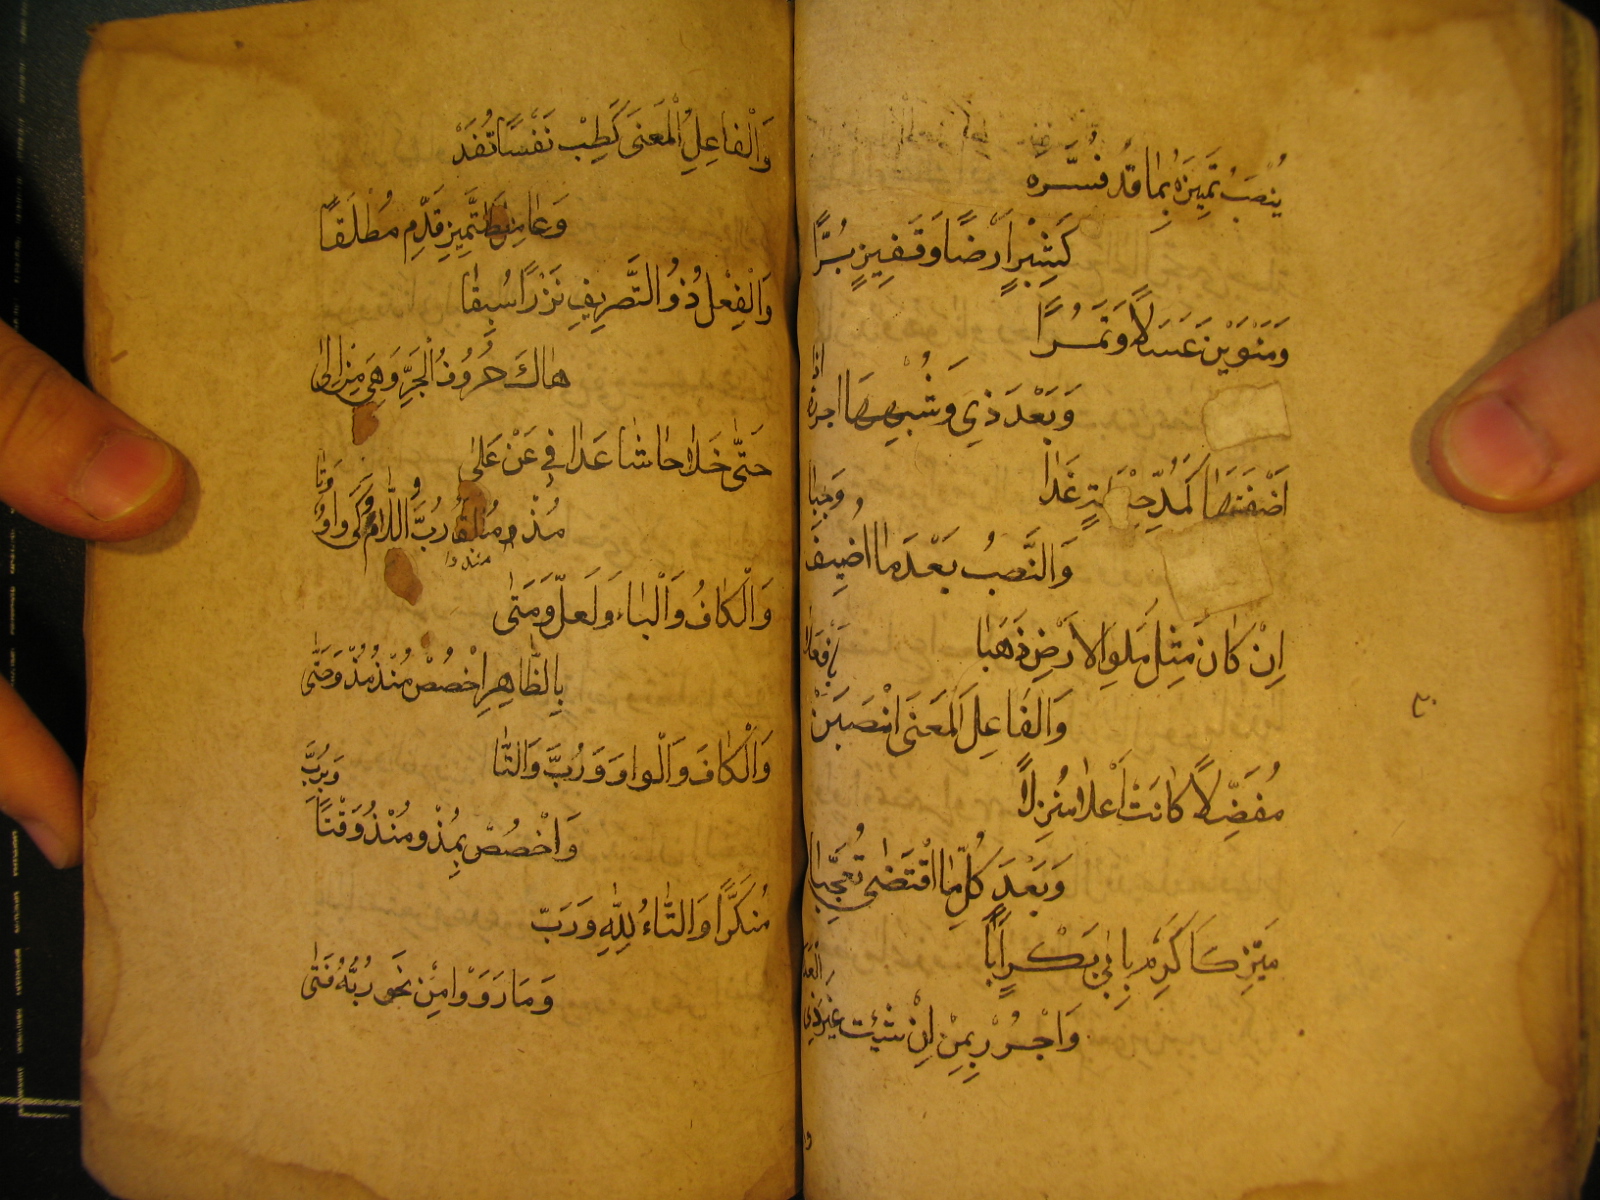 يُنْصَبُ تَمْيِيزَهُ بِمَا قَدْ فَسَّرَهُ
كَشِبْرٍ اَرْضًا وَقَفِيزٍ بُرًّا
وَمَنَوَيْنِ عَسَلًا وَتَمْرًا
وَبَعْدَ ذِي وَشُبْهِهَا اجره اذا
اَضَفْتَهَا كَمُدِّ حِنْطَةٍ غَدَا
وَالنَّصْبُ بَعْدَ مَا اُضِيفَ وَجَبا
اِنْ كَانَ مِثْلِ مَلْوِ الاَرْضِ ذَهَبا
وَالفَاعِلَ الْمَعْنَى انْصَبَنْ بِاَفْعَلا
مُفَضِّلًا كَانَتْ اَعْلا مَنْزِلًا
وَبَعْدَ كُلِّ مَا اقْتَضَى تَعَجُّبا
مَيِّزْ كَاَكْرِمْ بِاَبِي بَكْرٍ اَبًا
وَاجْرُرْ بِمِنْ اِنْ شِيْتَ غَيْرَ ذِي الْعَدَ
وَالْفَاعِلِ الْمَعْنَى كَطِبْ نَفْسًا تُفَدْ
وَعامِلَ التَّمْيِيزِ قَدِّمْ مُطْلَقًا
وَالْفِعْلُ ذُو التَّصْرِيفِ نَزْرًا سُبِقَا
هَاكَ حُرُوفُ الْجَرِّ وَهْيَ مِنْ اِلَى
حَتَّى خَلَا حَاشَا عَدَا فِي عَنْ عَلَى
مُذْ مُنْذُ رُبَّ اللَّامُ كَيْ وَاوٌ وَتَا
منذ
وَالْكَافُ وَالْبَاءُ وَلَعَلَّ وَمَتَى
بِالظَّاهِرِ اخْصُصْ مُنْذُ مُذْ وَحَتَّى
وَالْكَافَ وَالْوَاوَ وَرُبَّ وَالتَّا
وَاخْصُصْ بِمُذْ وَمُنْذُ وَقْتًا وَبِرُبَّ
مُنَكَّرًا وَالتَّاءُ لِلّهِ وَرَبّ
وَمَا رَوَوْا مِنْ نَحْوِ رُبَّهُ فَتَى